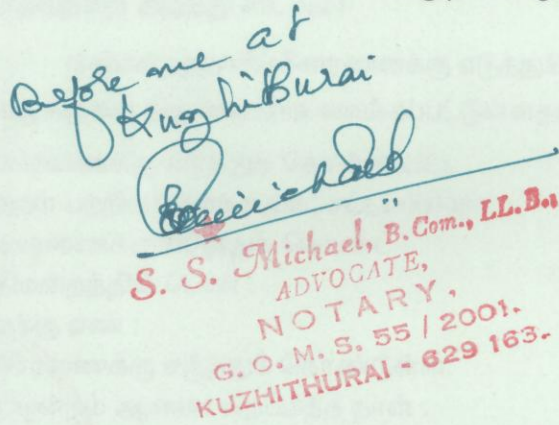 Before me at
KuzhiBurai
S. S. Michael, B.Com., LL.B.,
ADVOCATE,
NOTARY,
G. O. M. S. 55 / 2001.
KUZHITHURAI - 629 163.